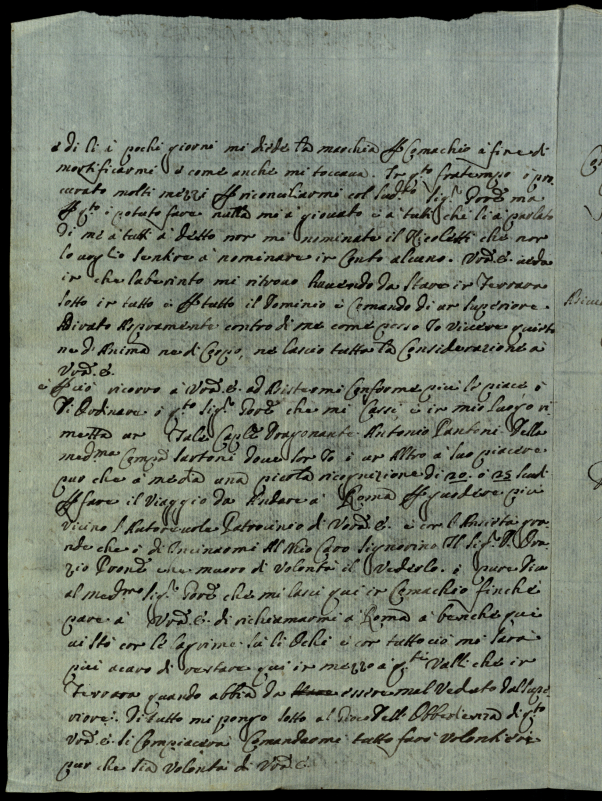 e di li à pochi giorni mi diede la marchia p Comachio à fine di
mortificarmi e come anche mi toccava. In qto fratempo ò pro,
curato molti mezzi p riconciliarmi col sudto Sigr ma
p qto ò potuto fare nulla mi à giovato e à tutti che li à parlato
di me à tutti à detto non mi nominate il Nicoletti che non
lo voglio sentire à nominare in conto alcuno. Vra E. veda
in che laberinto mi ritrovo havendo da stare in Ferrara
sotto in tutto e p tutto il Dominio e Comando di un superiore
Adirato contro di me come posso Io vivere quieto
ne d'Anima ne di Corpo, ne lascio tutta la Considerazione à
Vra E.
e p ciò ricorro à Vra E. ad Asistermi Conforme più le piace ò
di Ordinare à qto Sigr che mi Cassi, e in mio luogo ri
metta un Tale Caple Dragonante Antonio Pantoni della
medma Compa dove son Io ò un Altro à suo piacere
pur che à me dia una picola ricognizione di 20. ò 25 scudi
p fare il Viaggio da Andare à Roma p godere più
vicino l'Autorevole Patrocinio di Vra E. e con l'Ansietà gra,
nde che ò di Inchinarmi Al Mio Caro Signorino Il Sigr D. Ora,
zio che moro di Volontà il Vederlo. ò pure dica
al medmo Sigr che mi lasci qui in Comachio finche
pare à Vra E. di richiamarmi à Roma à benche qui
vi stò con le lagrime sù li Ochi e con tutto ciò mi sarà
più à caro di restare qui in mezzo à qte Valli che in
Ferrara quando abbia da essere mal Veduto dal supe,
riore. Di tutto mi pongo sotto al dell'Obbedienza di qto
Vra E. si Compiacerà Comandarmi tutto farò Volontieri
pur che sia Volontà di Vra E.